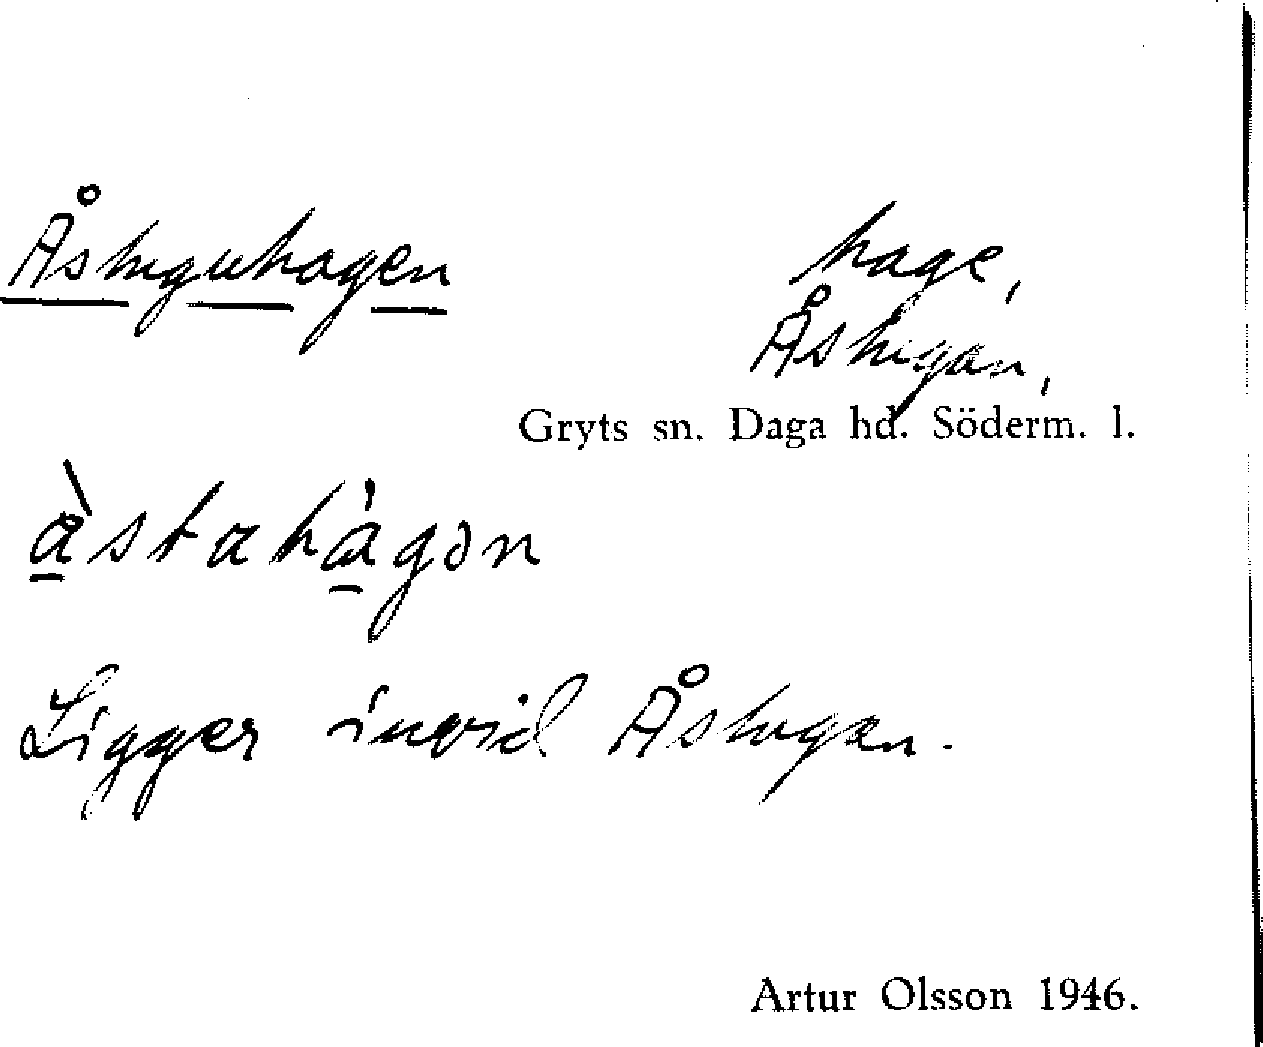 Åstuguhagen hage,
Åstugan,
Gryts sn. Daga hd. Söderm. l.
à̱stahá̱gən
Ligger invid Åstugan.
Artur Olsson 1946.